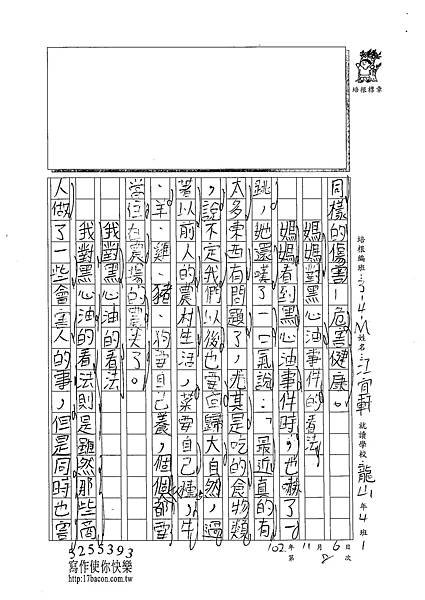 培根標章
培根編班：3-4-M 姓名：江宜軒 就讀學校 龍山 年 4 班 1
同樣的傷害—危害健康。
媽媽對黑心油事件的看法
媽媽看到黑心油事件時，也嚇了一
跳，她還嘆了一口氣說：「最近真的有
太多東西有問題了，尤其是吃的食物類
，說不定我們以後也要回歸大自然，過
著以前人的農村生活，菜要自己種，牛
、羊、雞、豬、狗要自己養，個個都要
當住在農場的農夫了。
我對黑心油的看法
我對黑心油的看法則是雖然那些商
人做了一些會害人的事，但是同時也害
102年 11月 6日
第 8 次
3255393
寫作使你快樂
http://17bacon.com.tw